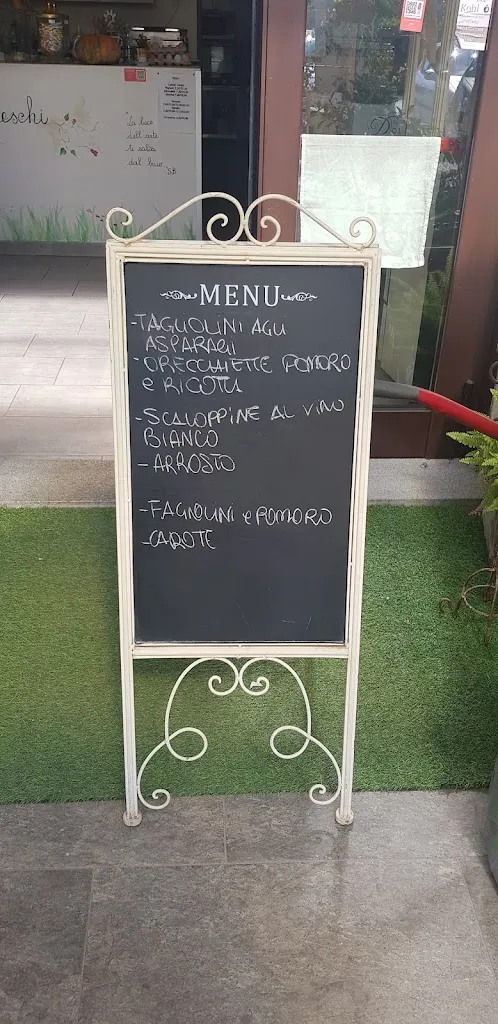 MENU
-TAGLIOLINI AGLI
ASPARAGI
-ORECCHIETTE POMORO
e RICOTTA
-SCALOPPINE AL VINO
BIANCO
-ARROSTO
-FAGIOLINI e POMORO
-CAROTE
eschi
"La luce
dell'arte
ti salta
dal buio"
S.B
Kohl